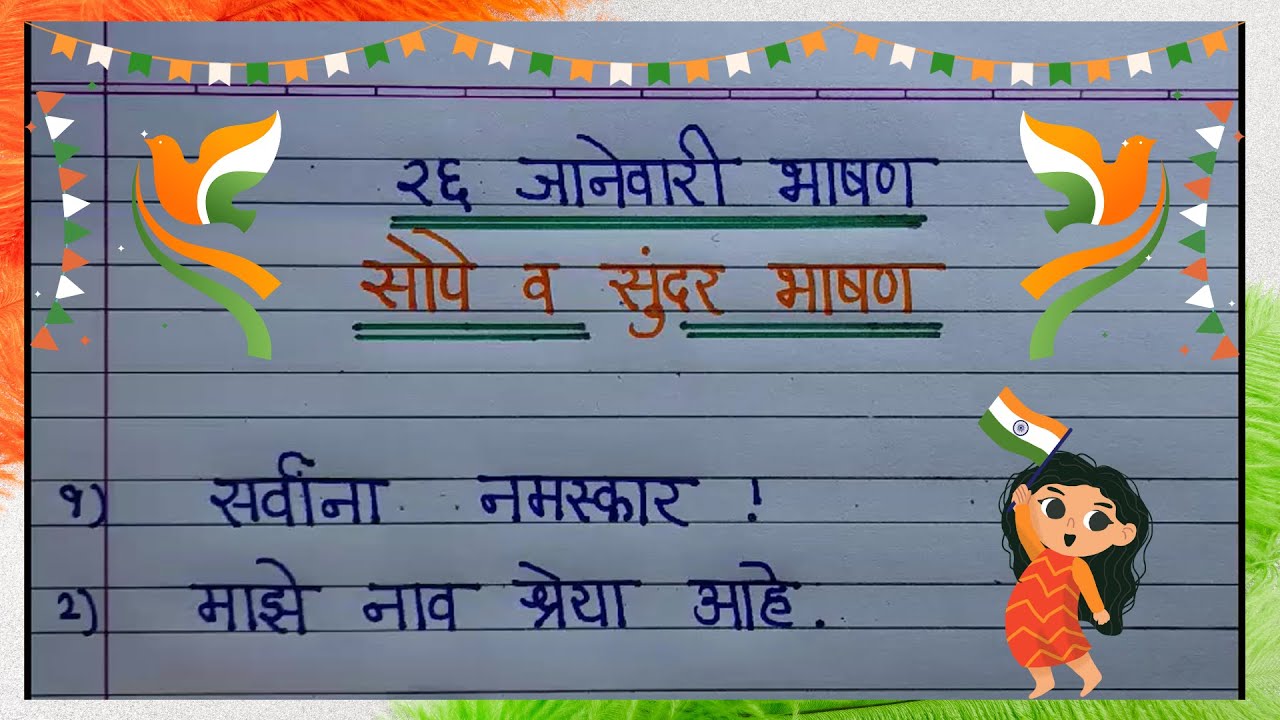 २६ जानेवारी भाषण
सोपे व सुंदर भाषण
१) सर्वांना नमस्कार !
2) माझे नाव श्रेया आहे.